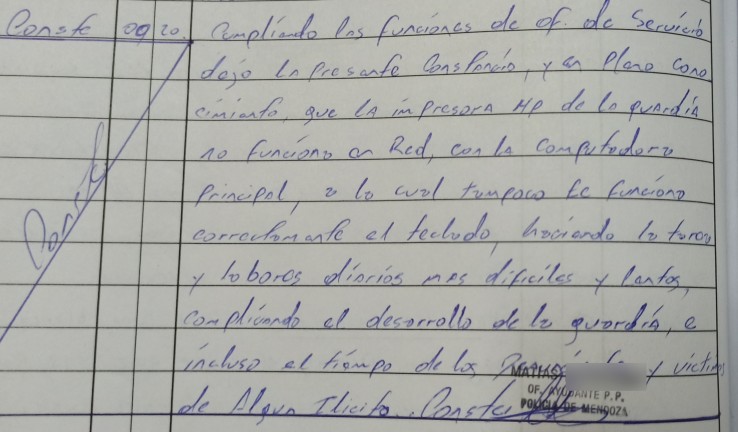 Conste 09 20. Cumpliendo las funciones de of. de Servicio
dejo la presente Constancia, y en pleno cono
cimiento, que la impresora HP de la guardia
no funciona en Red, con la computadora
Principal, a la cual tampoco le funciona
correctamente el teclado, haciendo la tarea
y labores diarios mas dificiles y lentas,
complicando el desarrollo de la guardia, e
incluso el tiempo de los y victimas
de Algun Ilicito. Conste
Conste
MATIAS
OF. AYUDANTE P.P.
POLICIA DE MENDOZA